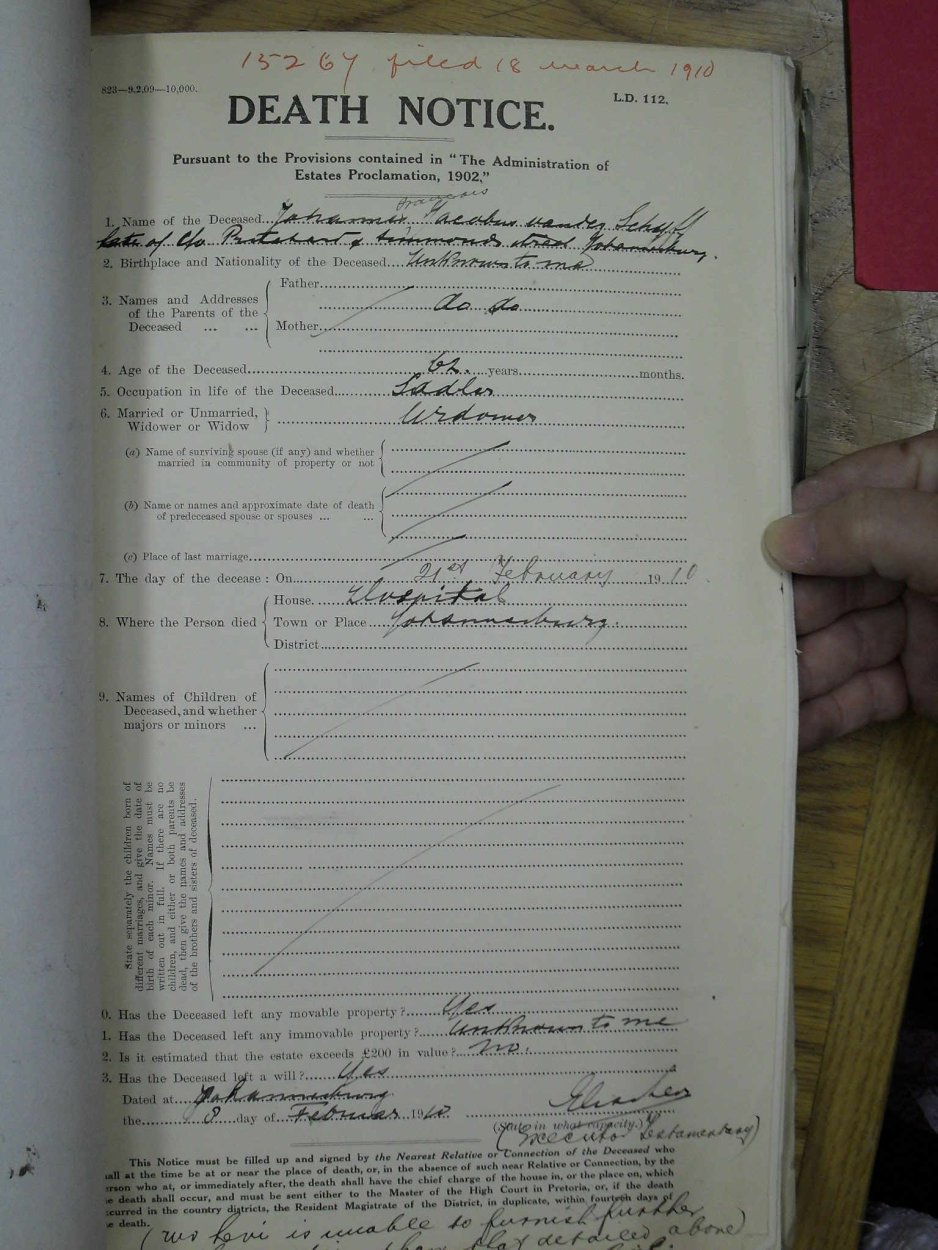 15267 filed 18 march 1910
823—9.2.09—10,000.
L.D. 112.
DEATH NOTICE.
Pursuant to the Provisions contained in "The Administration of
Estates Proclamation, 1902."
francois
1. Name of the Deceased Johannes Jacobus vander Schyff
late of c/o Pritchard & Simmonds street Johannesburg.
2. Birthplace and Nationality of the Deceased Unknown to me
3. Names and Addresses of the Parents of the Deceased ... ...
Father
do do
Mother
4. Age of the Deceased 62 years months.
5. Occupation in life of the Deceased Sadler
6. Married or Unmarried, Widower or Widow Widower
(a) Name of surviving spouse (if any) and whether
married in community of property or not
(b) Name or names and approximate date of death
of predeceased spouse or spouses ... ...
(c) Place of last marriage
7. The day of the decease: On 21st February 1910
8. Where the Person died
House. Hospital
Town or Place Johannesburg.
District
9. Names of Children of
Deceased, and whether
majors or minors ...
State separately the children born of
different marriages, and give the date of
birth of each minor. Names must be
written out in full. If there are no
children, and either or both parents be
dead, then give the names and addresses
of the brothers and sisters of deceased.
0. Has the Deceased left any movable property? Yes
1. Has the Deceased left any immovable property? Unknown to me
2. Is it estimated that the estate exceeds £200 in value? No.
3. Has the Deceased left a will? Yes
Dated at Johannesburg
the 8 day of Februar 1910
(State in what capacity.)
(Executor Testamentary)
This Notice must be filled up and signed by the Nearest Relative or Connection of the Deceased who
all at the time be at or near the place of death, or, in the absence of such near Relative or Connection, by the
rson who at, or immediately after, the death shall have the chief charge of the house in, or the place on, which
e death shall occur, and must be sent either to the Master of the High Court in Pretoria, or, if the death
curred in the country districts, the Resident Magistrate of the District, in duplicate, within fourteen days of
e death.
Levi is unable to furnish further
than that detailed above)